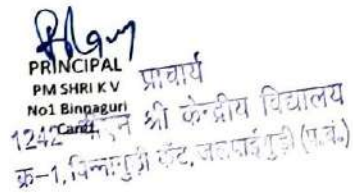 PRINCIPAL
PM SHRI K V
No1 Binnaguri
Cantt.
प्राचार्य
1242 श्री केन्द्रीय विद्यालय
क्र-1, बिन्नागुड़ी कैंट, जलपाईगुड़ी (प.बं.)